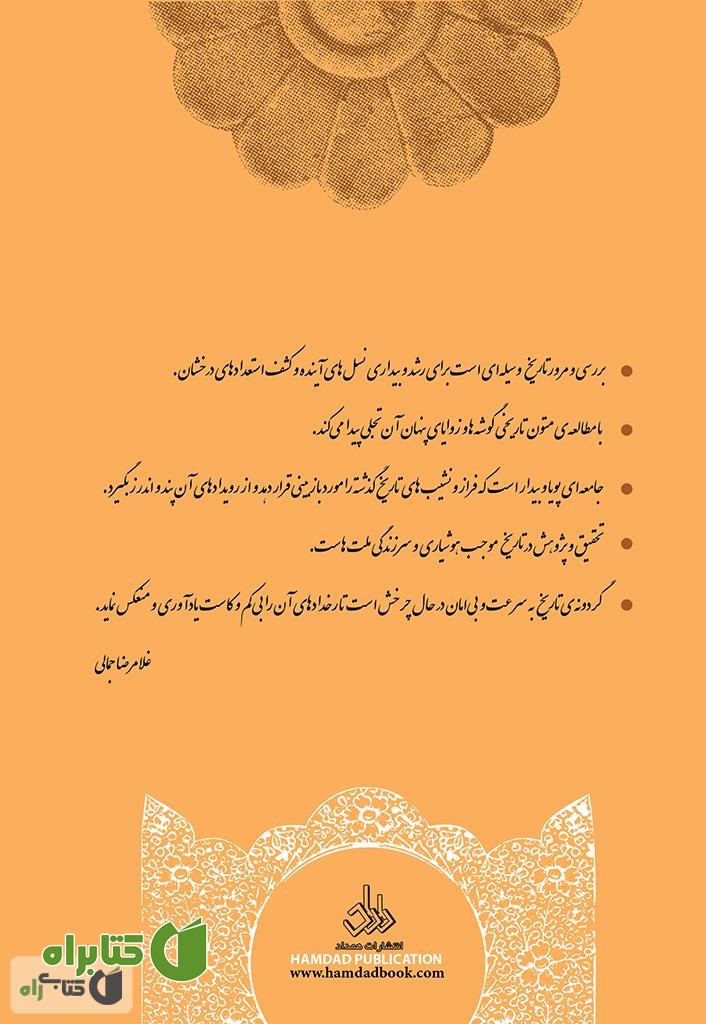 ● بررسی و مرور تاریخ وسیله‌ای است برای رشد و بیداری نسل‌های آینده و کشف استعدادهای درخشان.
● با مطالعه‌ی متون تاریخی گوشه‌ها و زوایای پنهان آن تجلی پیدا می‌کند.
● جامعه‌ای پویا و بیدار است که فراز و نشیب‌های تاریخ گذشته را مورد بازبینی قرار دهد و از رویدادهای آن پند و اندرز بگیرد.
● تحقیق و پژوهش در تاریخ موجب هوشیاری و سرزندگی ملت‌هاست.
● گردونه‌ی تاریخ به سرعت و بی‌امان در حال چرخش است تا رخدادهای آن را بی‌کم و کاست یادآوری و منعکس نماید.
غلامرضا جمالی
انتشارات همداد
HAMDAD PUBLICATION
www.hamdadbook.com
کتابراه
کتابی راه